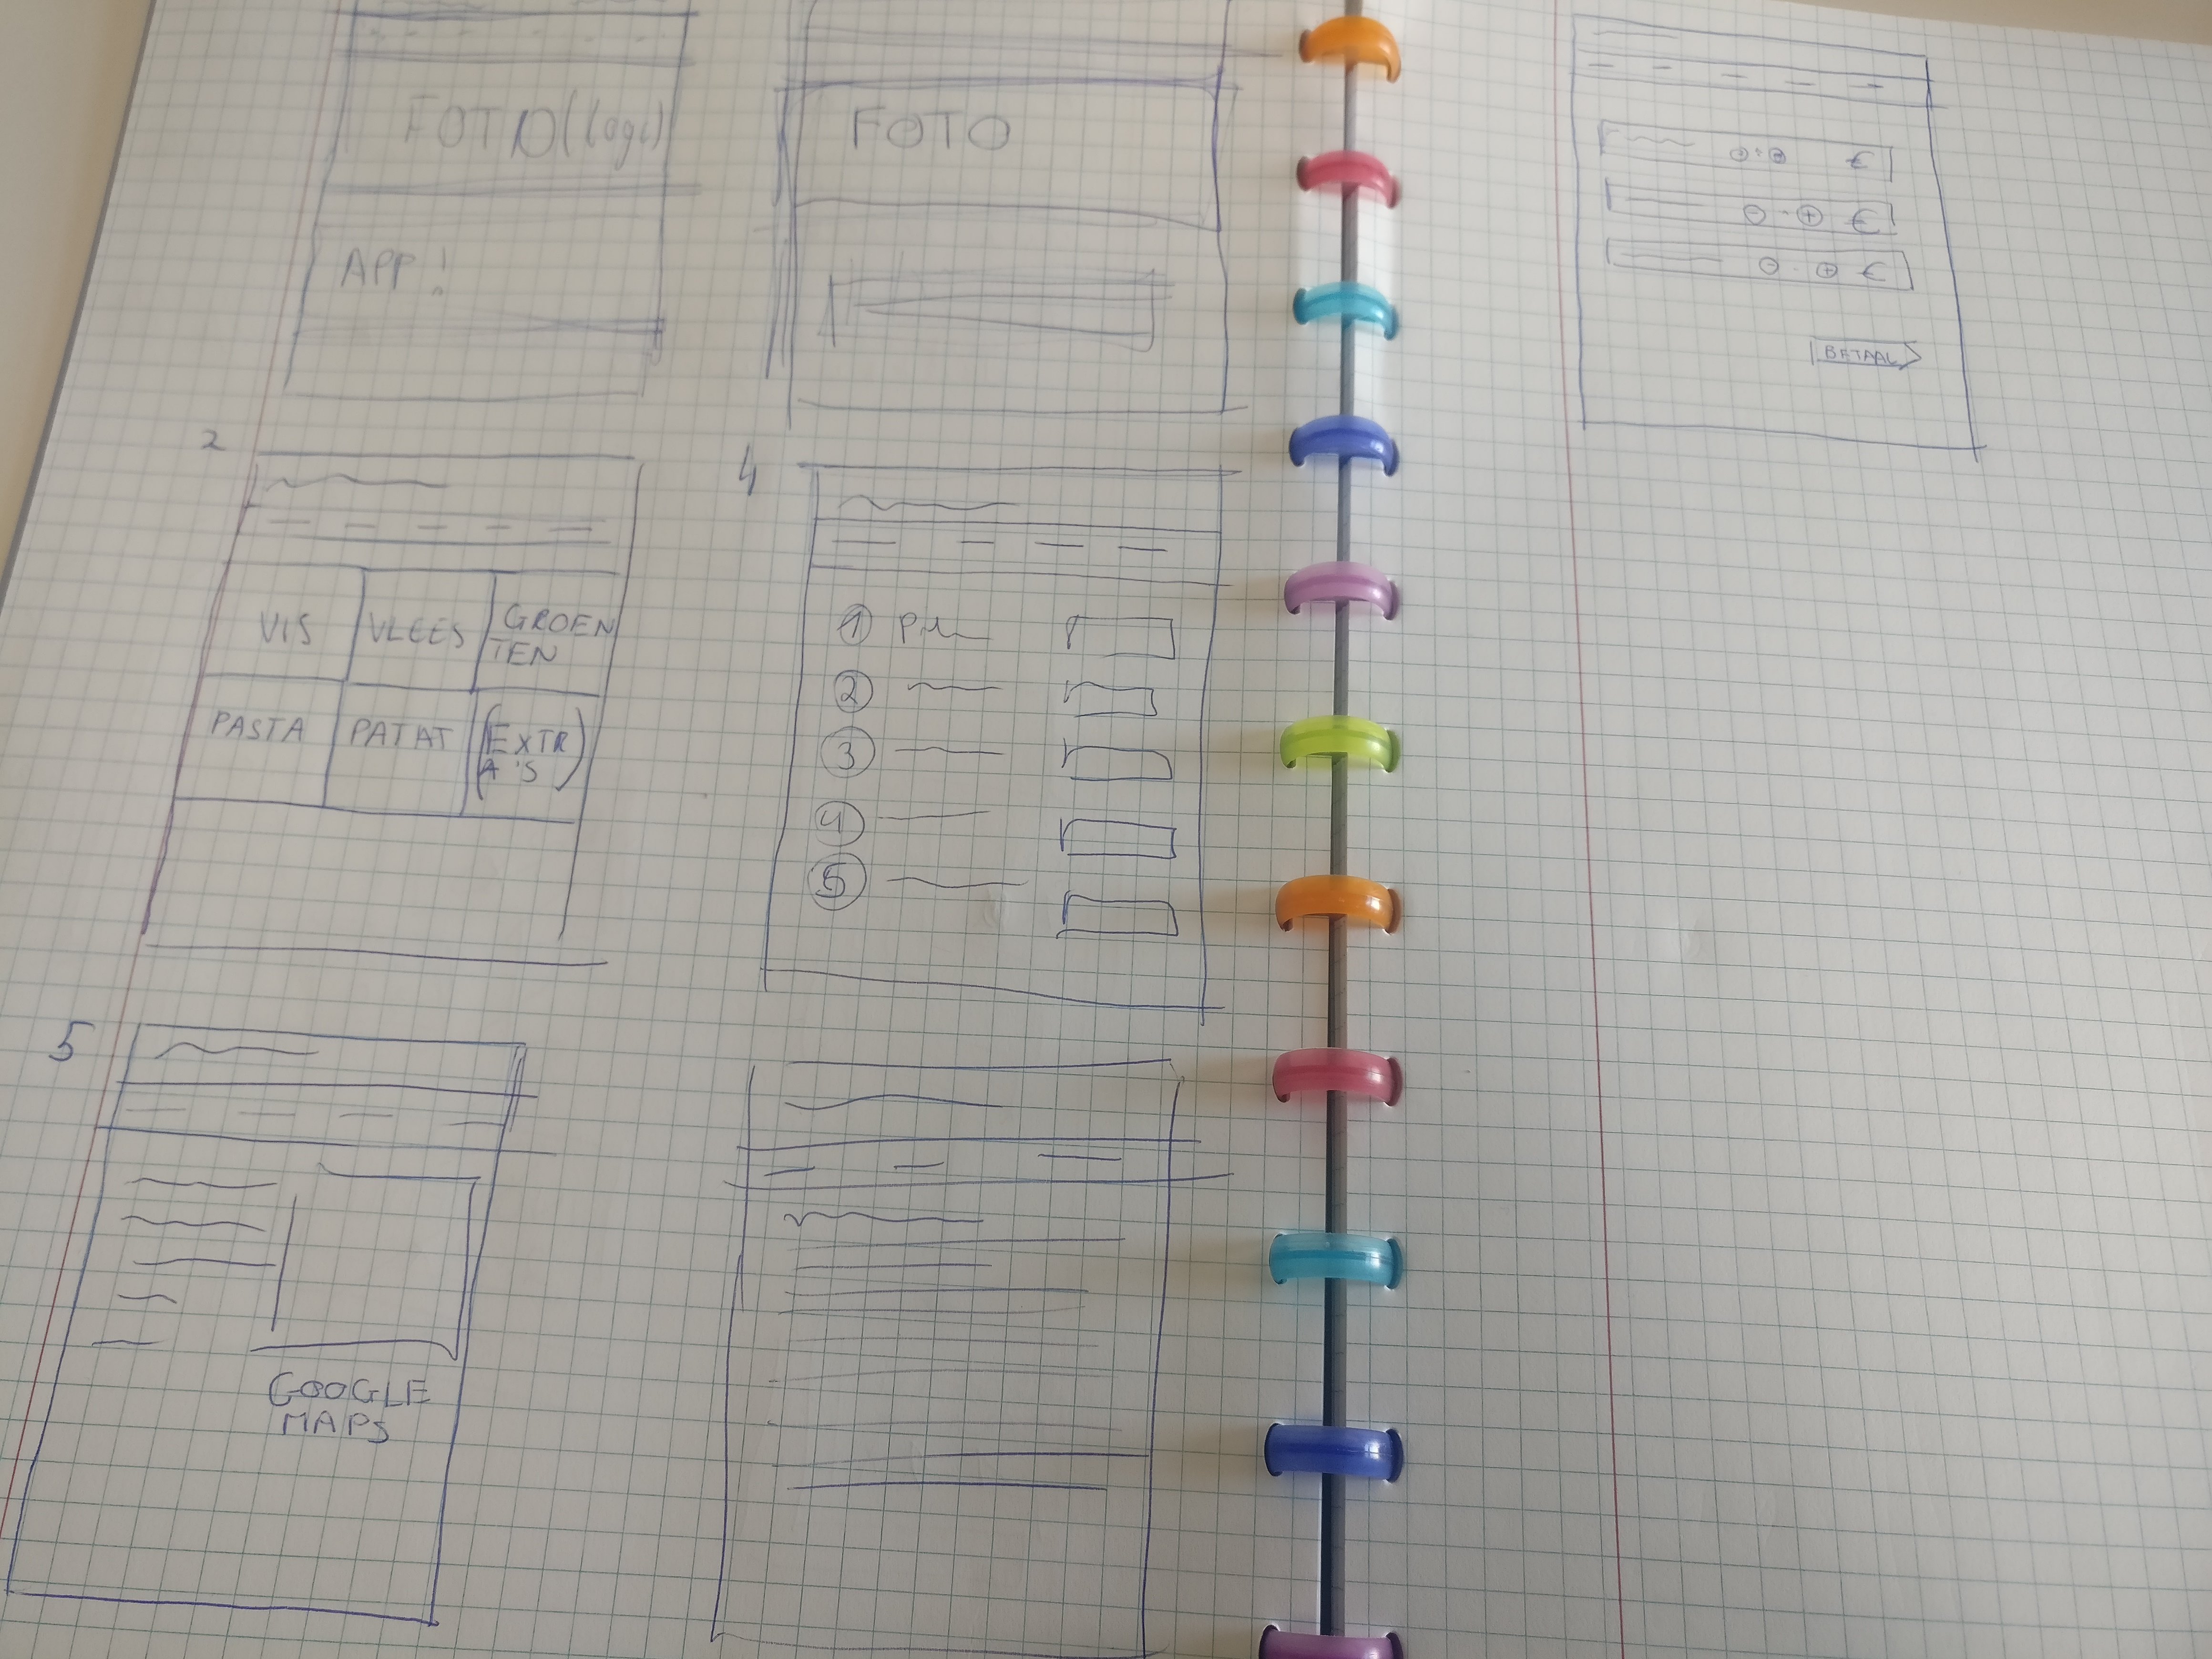 FOTO(logo)
APP!
FOTO
2
VIS
VLEES
GROEN
TEN
PASTA
PATAT
(EXTR
A'S)
4
1
2
3
4
5
5
GOOGLE
MAPS
- · + €
- · + €
- · + €
BETAAL